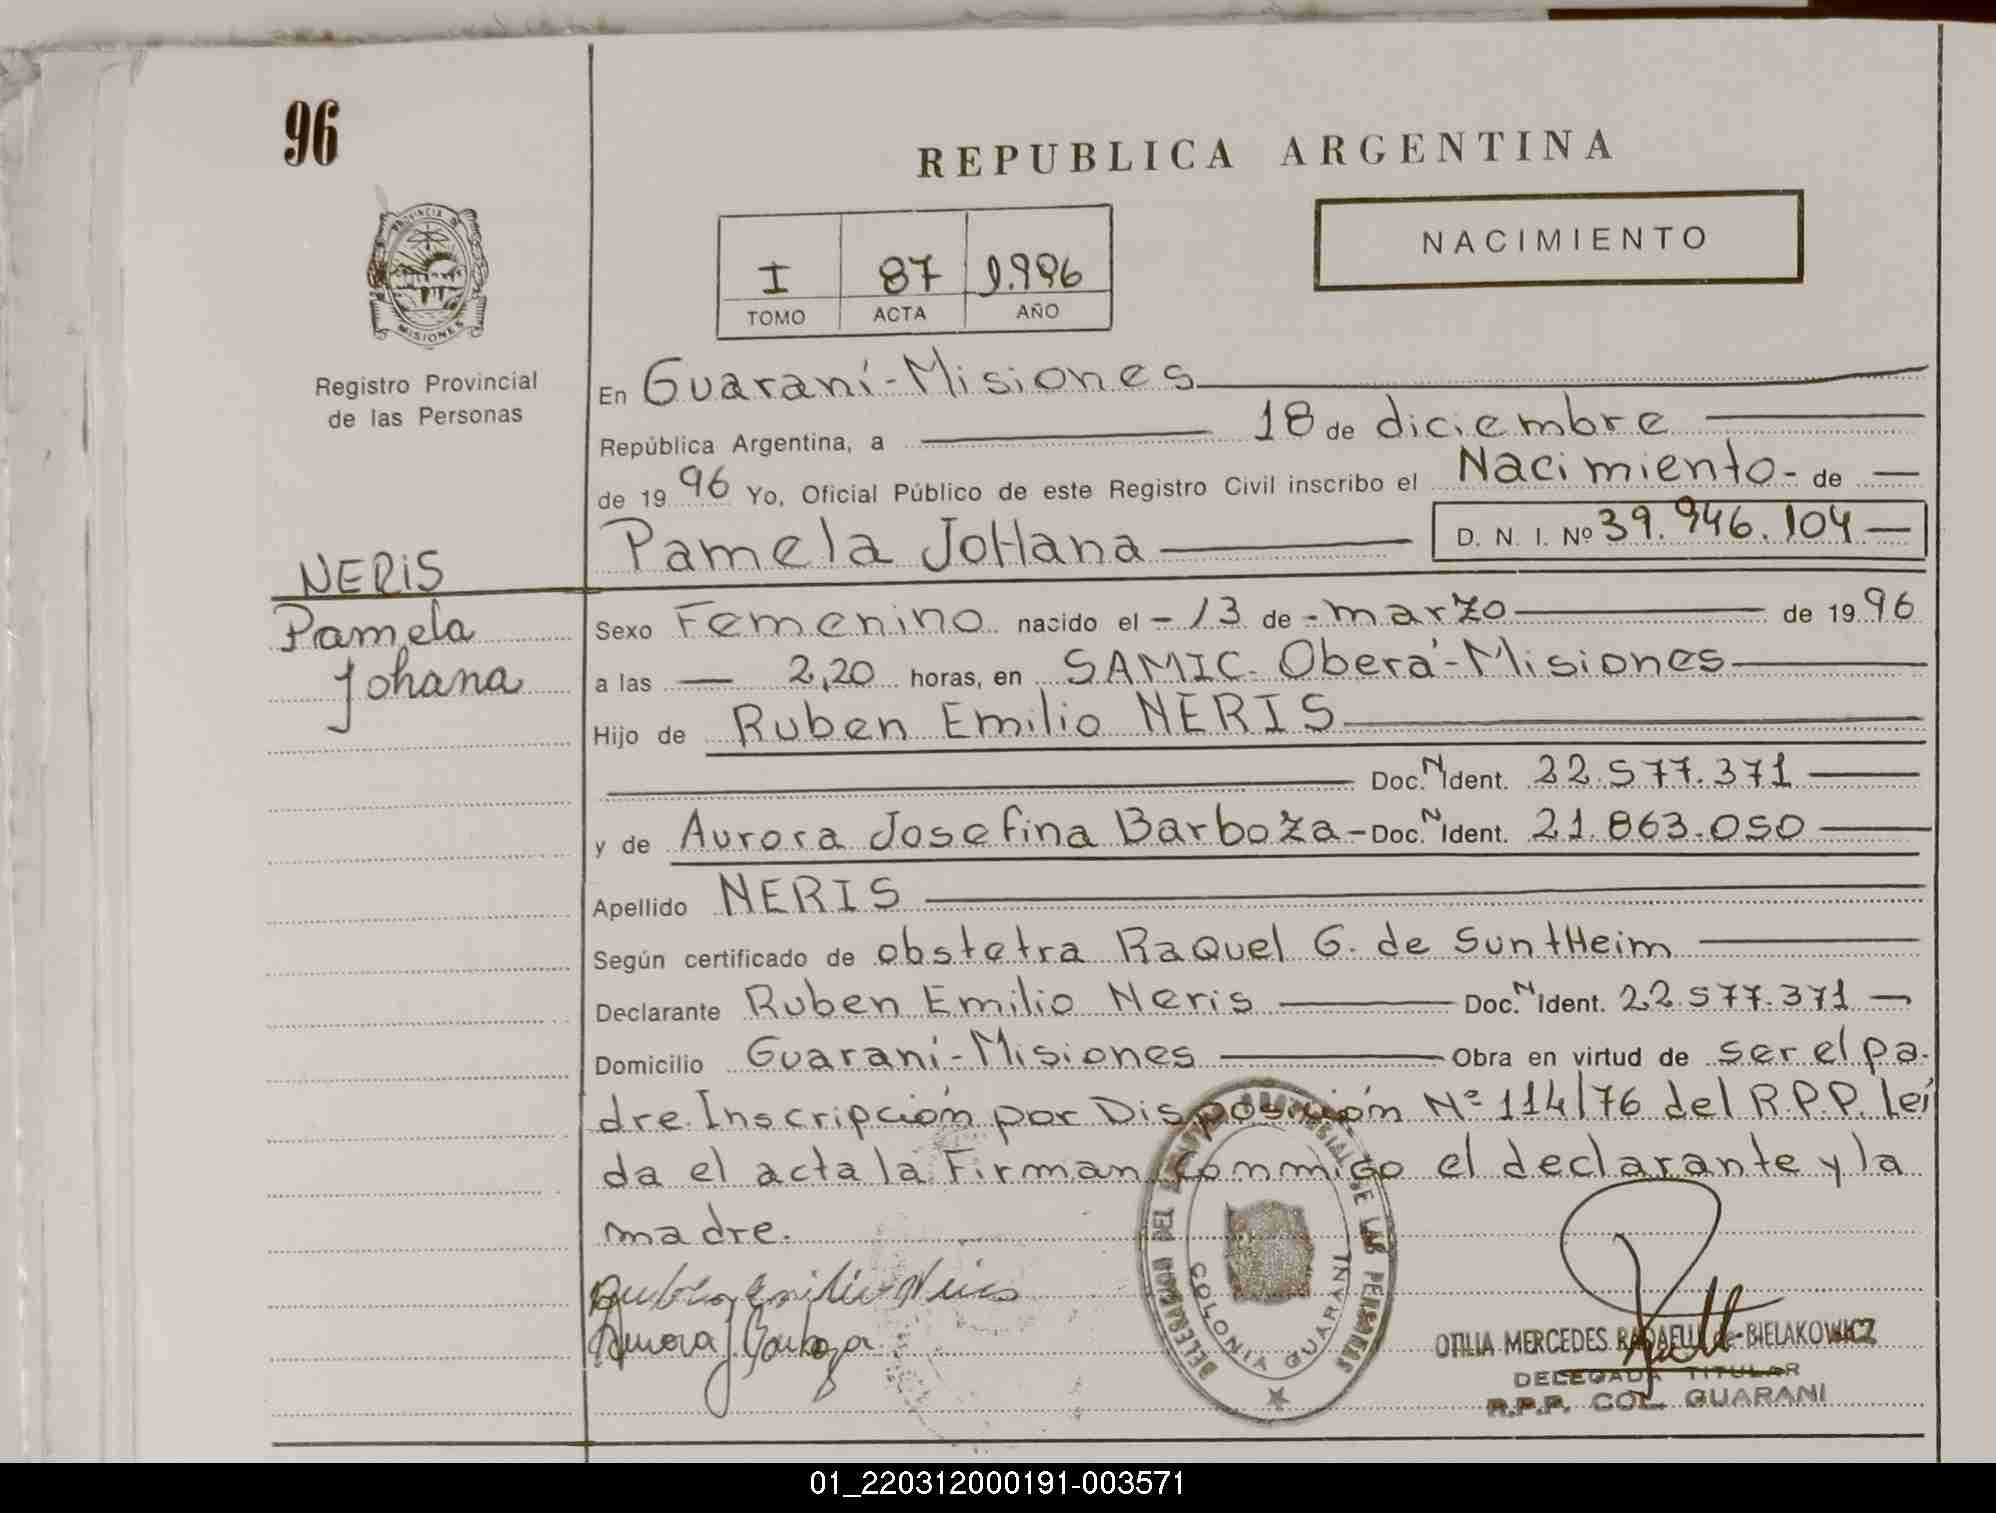 96
REPUBLICA ARGENTINA
NACIMIENTO
I 87 1.996
TOMO ACTA AÑO
PROVINCIA D
MISIONES
Registro Provincial
de las Personas
En Guaraní-Misiones
República Argentina, a 18 de diciembre
de 19 96 Yo, Oficial Público de este Registro Civil inscribo el Nacimiento - de
Pamela JoHana D. N. I. Nº 39.946.104
NERIS
Pamela
Johana
Sexo Femenino nacido el - 13 de - marzo de 19 96
a las 2,20 horas, en SAMIC - Oberá - Misiones
Hijo de Ruben Emilio NERIS
Doc. N Ident. 22.577.371
y de Aurora Josefina Barboza - Doc. N Ident. 21.863.050
Apellido NERIS
Según certificado de obstetra Raquel G. de SuntHeim
Declarante Ruben Emilio Neris Doc. N Ident. 22.577.371
Domicilio Guaraní-Misiones Obra en virtud de ser el pa-
dre. Inscripción por Disposición Nº 114/76 del R.P.P. Leí
da el acta la Firman conmigo el declarante y la
madre.
Ruben Emilio Neris
Aurora J. Barboza
DELEGACION DEL DE LAS PERSONAS
COLONIA GUARANI
OTILIA MERCEDES RADAELLI de BIELAKOWICZ
DELEGADA TITULAR
R.P.P. COL. GUARANI
01_220312000191-003571